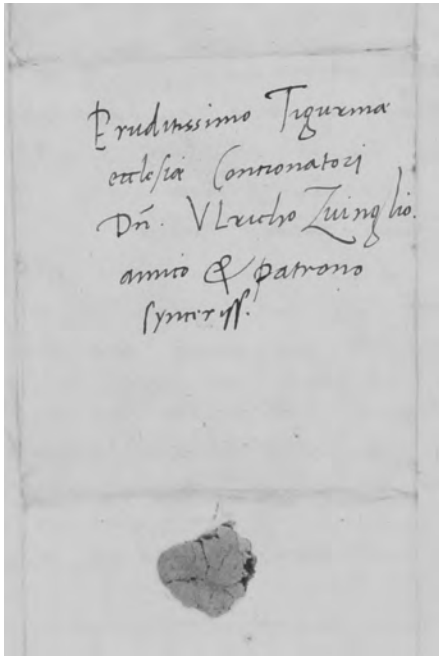 Eruditissimo Tigurinæ
ecclesiæ Concionatori
Dn̄. VLricho Zuinglio.
amico & patrono
synceriss.